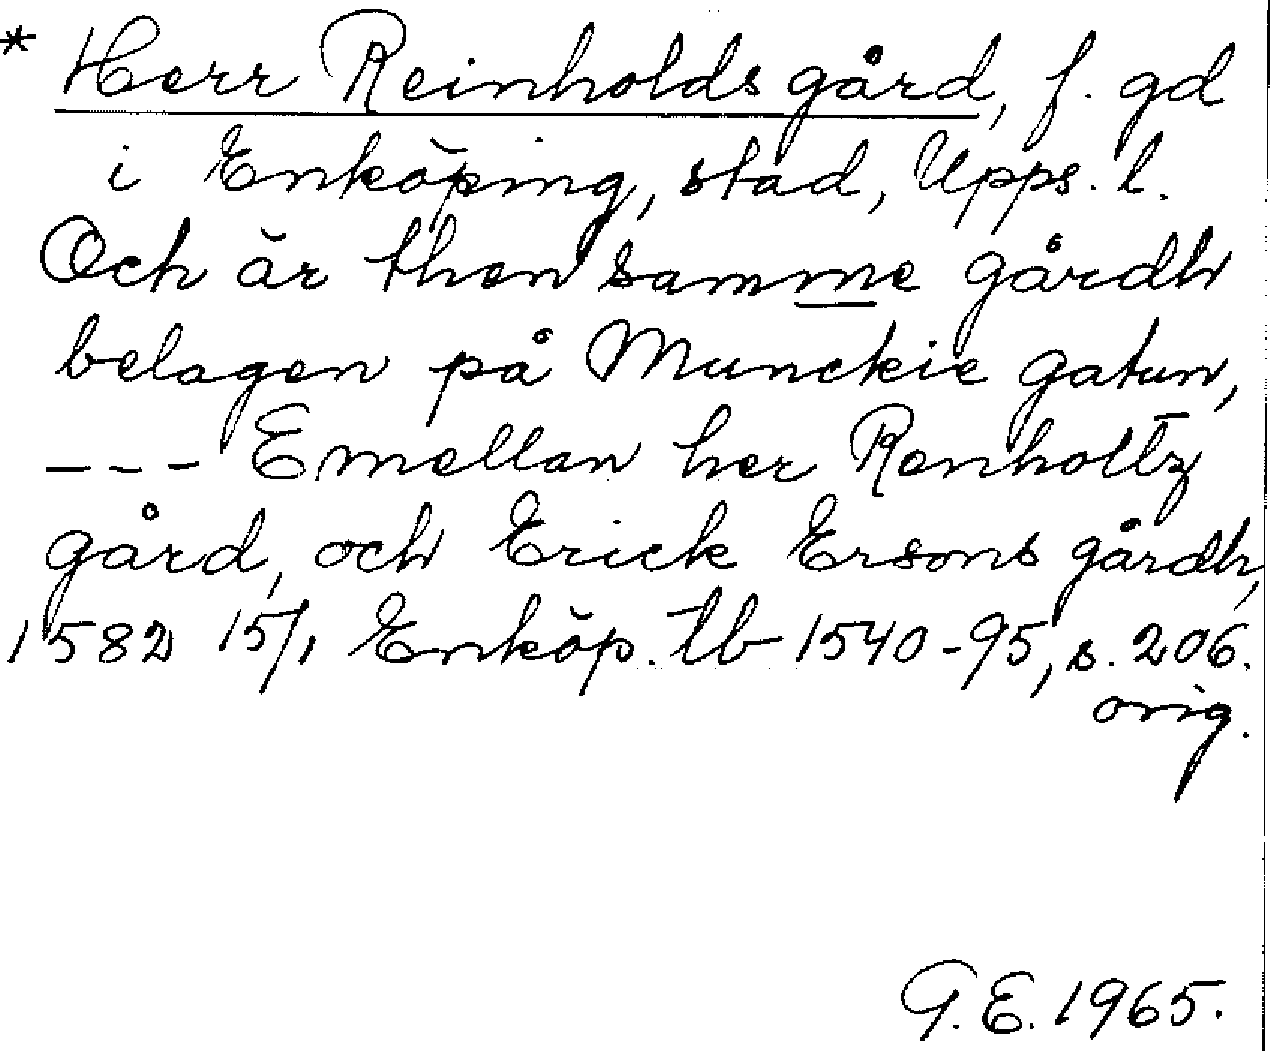 * Herr Reinholds gård, f. gd
i Enköping, stad, Upps. l.
Och är then samme gårdh
belagen på Munckie gatun,
--- Emellan her Renholtz
gård, och Erick Ersons gårdh,
1582 15/1 Enköp. tb 1540-95, s. 206.
orig.
G.E. 1965.